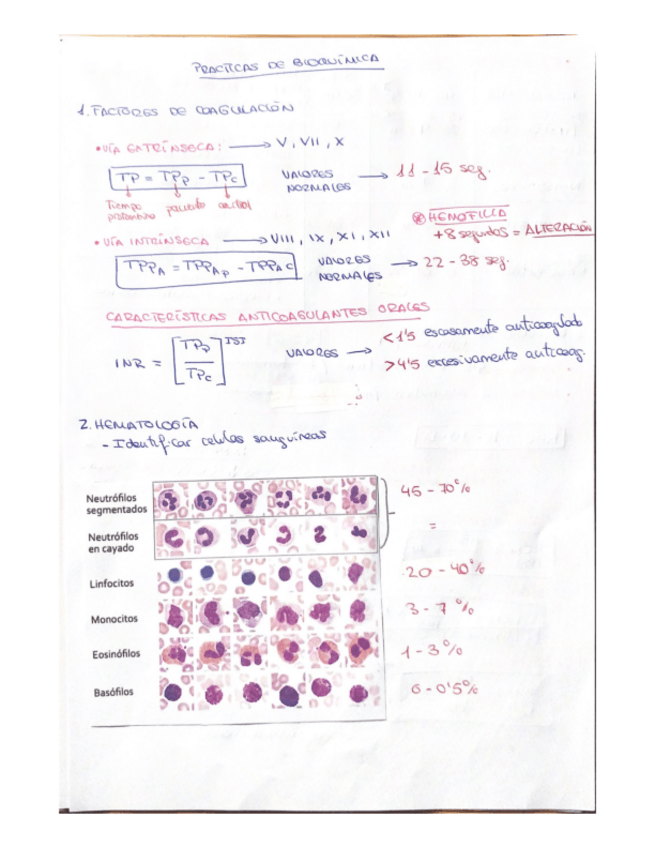 PRACTICAS DE BIOQUÍMICA
1. FACTORES DE COAGULACIÓN
• VÍA EXTRÍNSECA: → V, VII, X
TP = TPp - TPc VALORES NORMALES → 11 - 15 seg.
Tiempo protrombina paciente control
⊛ HEMOFILIA
+8 segundos = ALTERACIÓN
• VÍA INTRÍNSECA → VIII, IX, XI, XII
TPPA = TPPAp - TPPAc VALORES NORMALES → 22 - 38 seg.
CARACTERÍSTICAS ANTICOAGULANTES ORALES
INR = [TPp / TPc] ISI VALORES → <1'5 escasamente anticoagulado
>4'5 excesivamente anticoag.
2. HEMATOLOGÍA
- Identificar celulas sanguíneas
Neutrófilos segmentados 45 - 70%
Neutrófilos en cayado =
Linfocitos 20 - 40%
Monocitos 3 - 7%
Eosinófilos 1 - 3%
Basófilos 0 - 0'5%